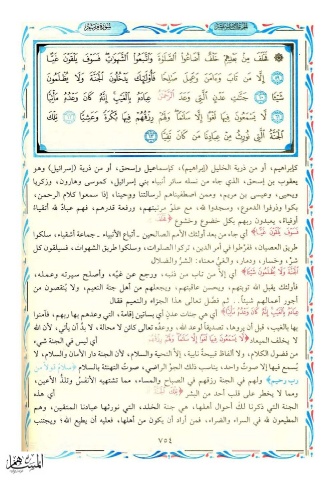 خَلْفٌ أَضَاعُوا الصَّلَوٰةَ وَاتَّبَعُوا الشَّهَوَاتِ فَسَوْفَ يَلْقَوْنَ غَيًّا
إِلَّا مَن تَابَ وَءَامَنَ وَعَمِلَ صَٰلِحًا فَأُو۟لَٰٓئِكَ يَدْخُلُونَ الْجَنَّةَ وَلَا يُظْلَمُونَ
شَيْـًٔا جَنَّٰتِ عَدْنٍ الَّتِى وَعَدَ الرَّحْمَٰنُ عِبَادَهُ بِالْغَيْبِ إِنَّهُ كَانَ وَعْدُهُ مَأْتِيًّا
لَّا يَسْمَعُونَ فِيهَا لَغْوًا إِلَّا سَلَٰمًا وَلَهُمْ رِزْقُهُمْ فِيهَا بُكْرَةً وَعَشِيًّا تِلْكَ
الْجَنَّةُ الَّتِى نُورِثُ مِنْ عِبَادِنَا مَن كَانَ تَقِيًّا
كإبراهيم، أو من ذرية الخليل (إبراهيم)، كإسماعيل وإسحق، أو من ذرية (إسرائيل) وهو
يعقوب بن إسحق، الذي جاء من نسله سائر أنبياء بني إسرائيل، كموسى وهارون، وزكريا
ويحيى، وعيسى بن مريم، وممن اصطفيناهم لرسالتنا ووحينا، إذا سمعوا كلام الرحمن،
بكوا وذرفوا الدموع، وسجدوا لله، مع علو مرتبتهم، ورفعة قدرهم، فهم عباد لله أتقياء
أوفياء، يعبدون ربهم بكل خضوع وخشوع
أي جاء من بعد أولئك الأمم الصالحين ـ أتباع الأنبياء ـ جماعة أشقياء، سلكوا
طريق العصيان، ففرطوا في أمر الدين، تركوا الصلوات، وسلكوا طريق الشهوات، فسيلقون كل
شر، وخسار، ودمار، والغي معناه: الشر والضلال
أي إلا من تاب من ذنبه، ورجع عن غيه، وأصلح سيرته وعمله،
فأولئك يقبل الله توبتهم، ويحسن عاقبتهم، ويجعلهم من أهل جنة النعيم، ولا ينقصون من
أجور أعمالهم شيئاً.. ثم فصل تعالى هذا الجزاء والنعيم فقال
أي هي جنات عدن أي بساتين إقامة، التي وعدهم بها ربهم، فآمنوا
بها بالغيب، قبل أن يروها، تصديقاً لوعد الله، ووعده تعالى كائن لا محالة، لا بد أن يأتي، لأن الله
لا يخلف الميعاد لا يسمعون فيها لغوا إلا سلاما أي ليس في الجنة شيء
من فضول الكلام، ولا ألفاظ قبيحة نابية، إلا التحية والسلام، لأن الجنة دار الأمان والسلام، لا
يسمع فيها إلا صوت واحد، يناسب ذلك الجو الراضي، صوت التهنئة بالسلام سلام قولا من
رب رحيم ولهم في الجنة رزقهم في الصباح والمساء، مما تشتهيه الأنفس وتلذ الأعين،
ومما لا يخطر على قلب أحد من البشر أي هذه
الجنة التي ذكرنا لك أحوال أهلها، هي جنة الخلد، التي نورثها عبادنا المتقين، وهم
المطيعون لله في السراء والضراء، فمن أراد أن يكون من أهلها، فعليه أن يطيع الله؛ ويجتنب
٧٥٤